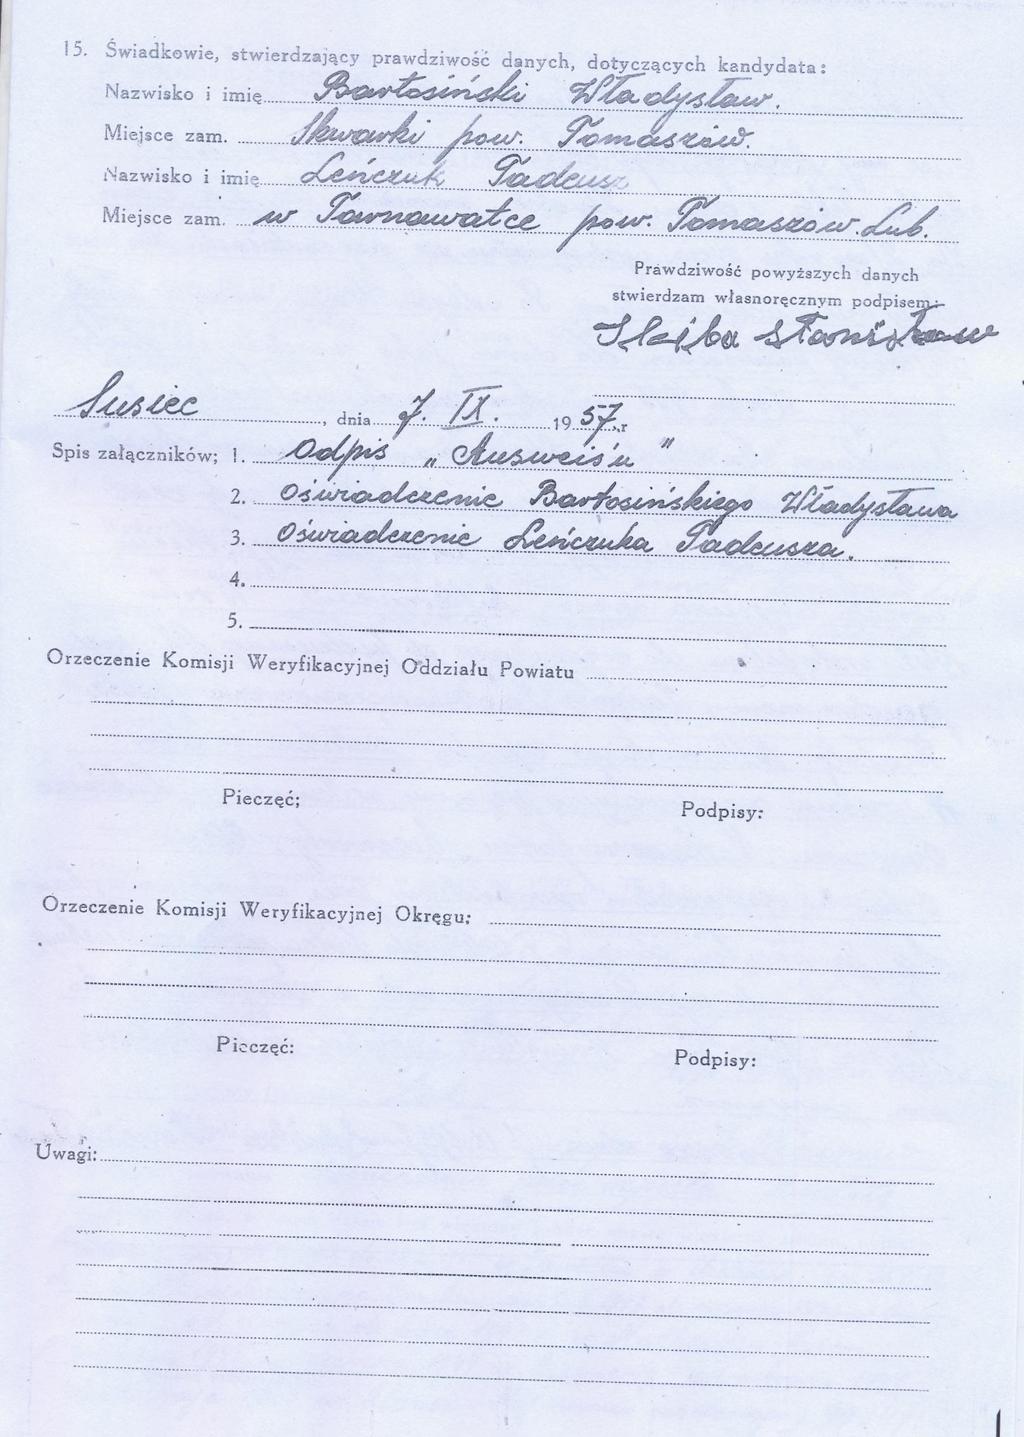 15. Świadkowie, stwierdzający prawdziwość danych, dotyczących kandydata:
Nazwisko i imię Bartosiński Władysław.
Miejsce zam. Skwarki pow. Tomaszów.
Nazwisko i imię Leńczuk Tadeusz
Miejsce zam. w Tarnawatce pow. Tomaszów. Lub.
Prawdziwość powyższych danych
stwierdzam własnoręcznym podpisem:-
Skiba Stanisław
Susiec, dnia 7. IX. 1957.r
Spis załączników; 1. Odpis „Ausweis'u"
2. Oświadczenie Bartosińskiego Władysława
3. Oświadczenie Leńczuka Tadeusza.
4.
5.
Orzeczenie Komisji Weryfikacyjnej Oddziału Powiatu
Pieczęć;
Podpisy:
Orzeczenie Komisji Weryfikacyjnej Okręgu;
Pieczęć:
Podpisy:
Uwagi: